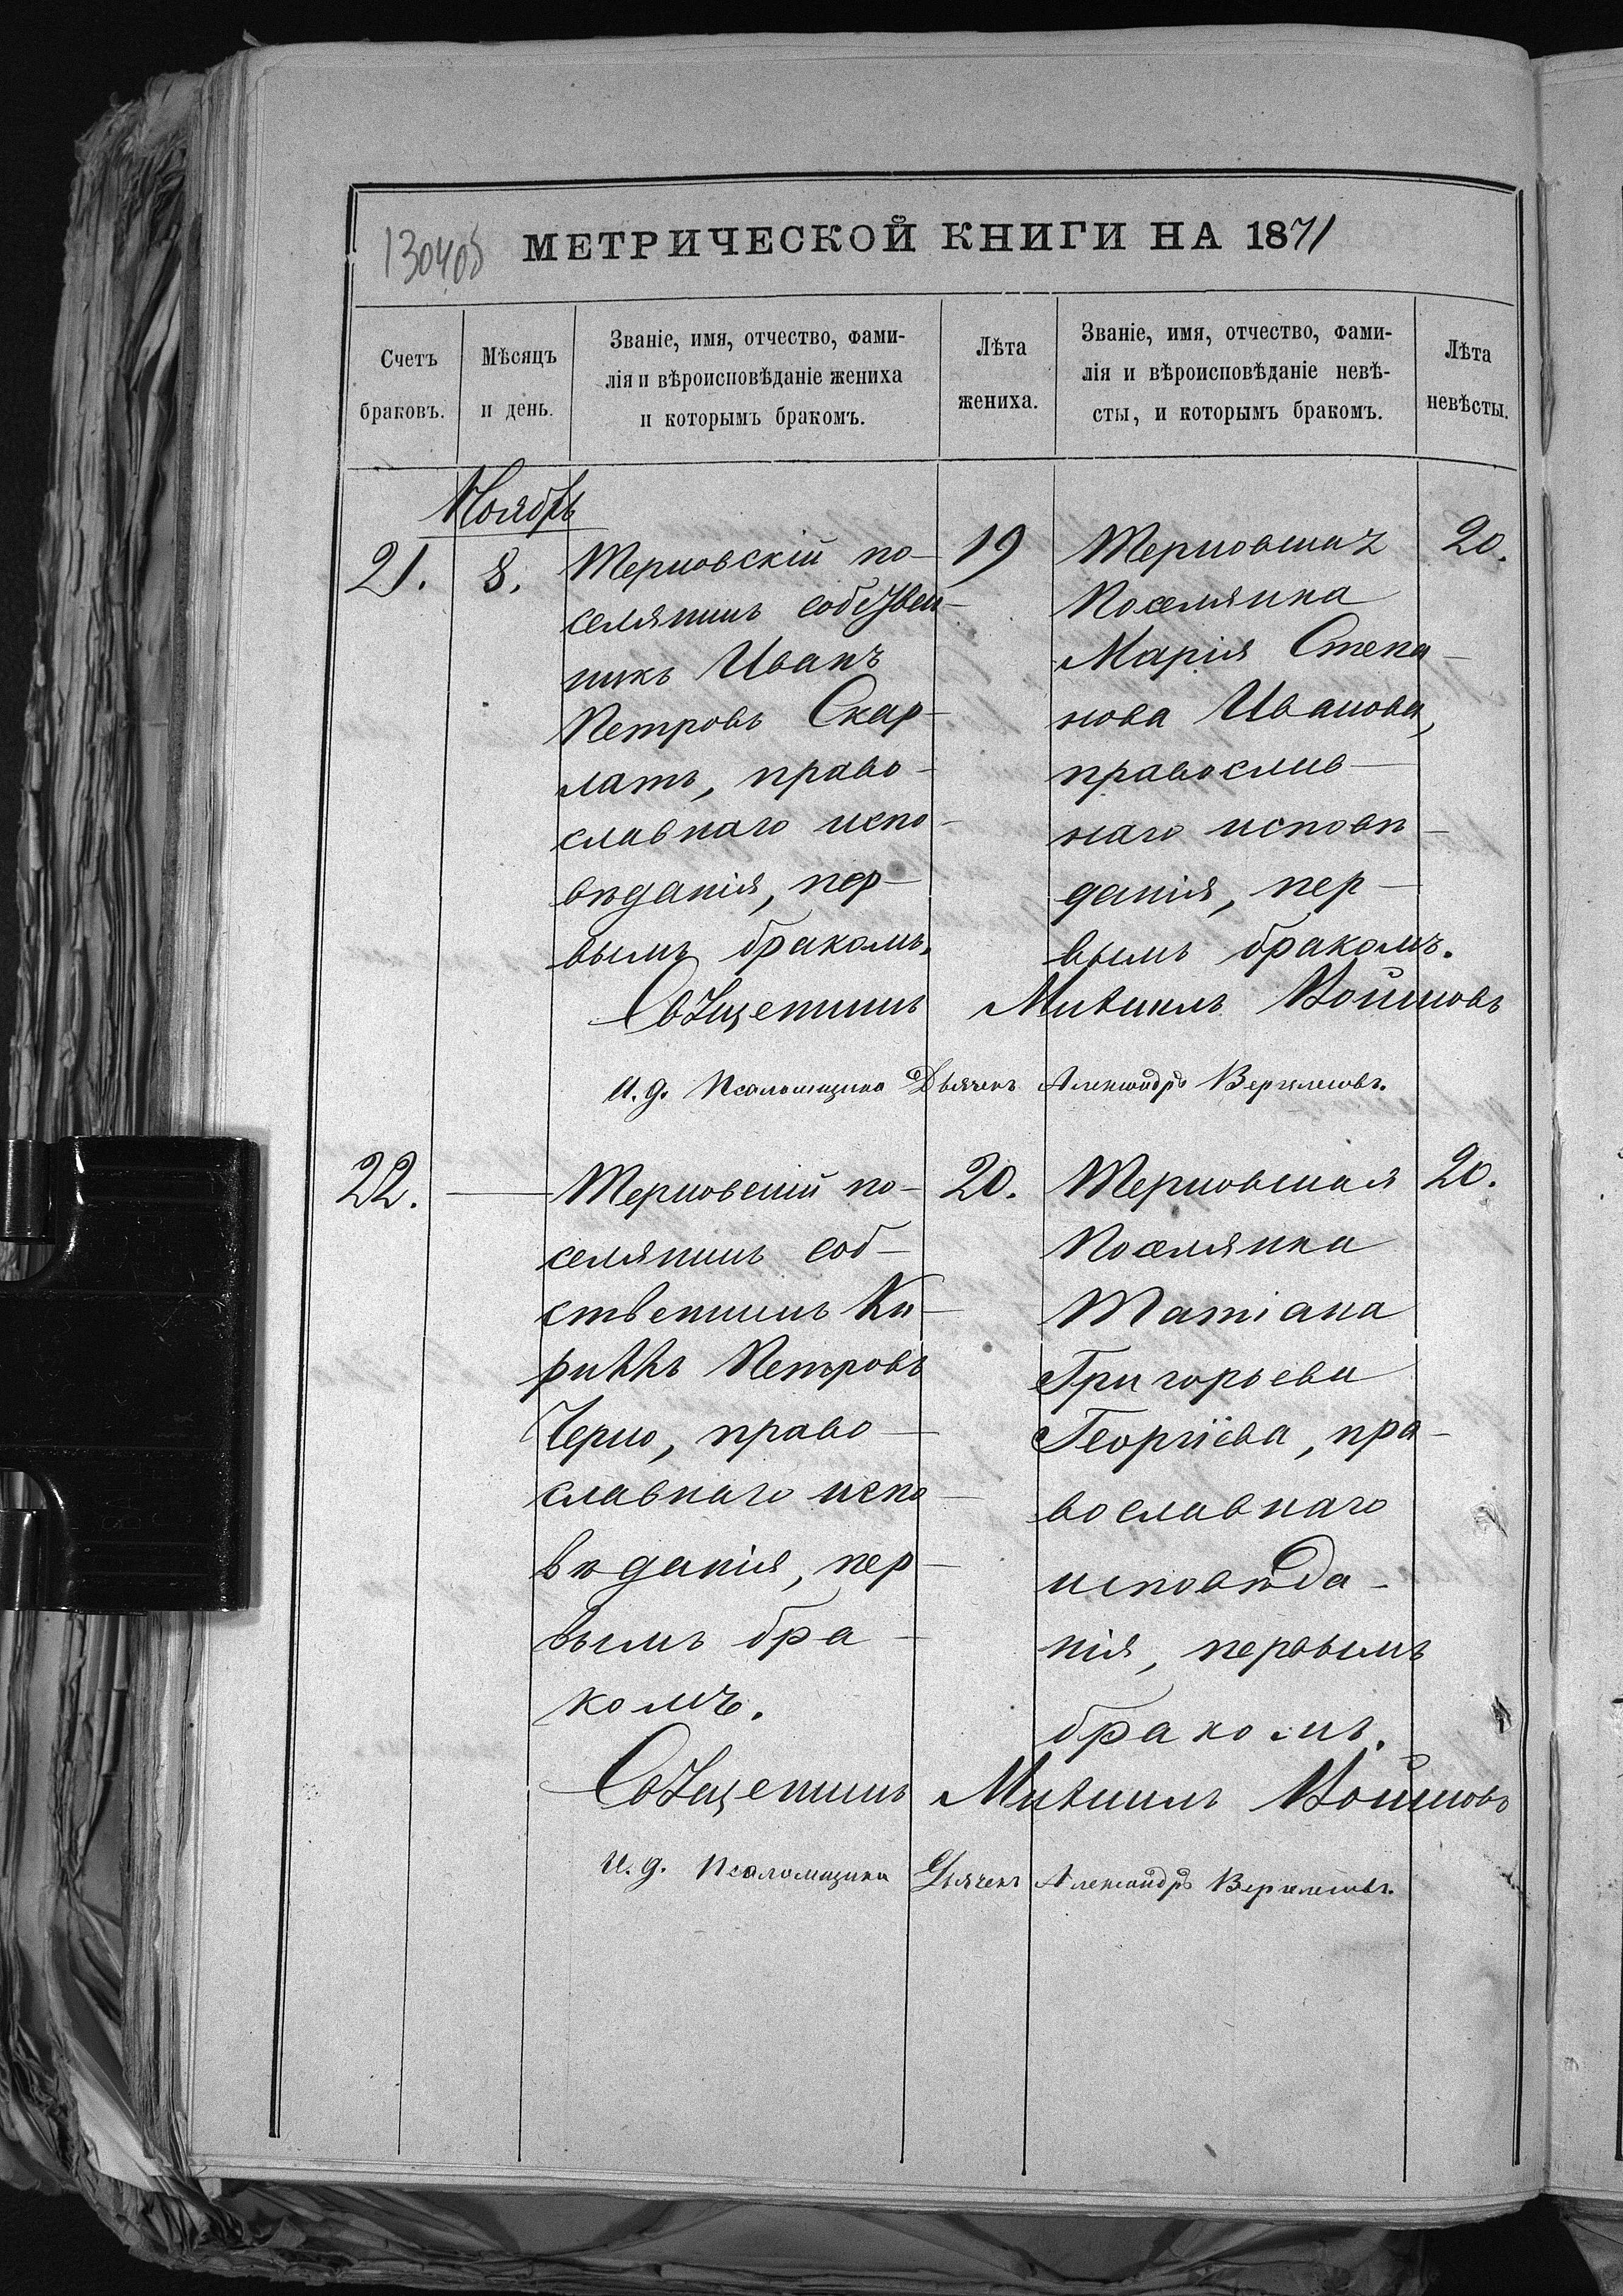 130405 МЕТРИЧЕСКОЙ КНИГИ НА 1871
Счетъ браковъ.
Мѣсяцъ и день.
Званіе, имя, отчество, фами-
лія и вѣроисповѣданіе жениха
и которымъ бракомъ.
Лѣта жениха.
Званіе, имя, отчество, фами-
лія и вѣроисповѣданіе невѣ-
сты, и которымъ бракомъ.
Лѣта невѣсты.
Ноябрь
21.
8.
Терновскій по-
селянинъ собствен-
никъ Иванъ
Петровъ Скар-
латъ, право-
славнаго испо-
вѣданія, пер-
вымъ бракомъ.
19
Терновская
Поселянка
Марія Степа-
нова Иванова,
православ-
наго исповѣ-
данія, пер-
вымъ бракомъ.
20.
Священникъ Михаилъ Войновъ
И. д. Псаломщика Дьячекъ Александръ
22.
Терновскій по-
селянинъ соб-
ственникъ Ки-
риллъ Петровъ
Черно, право-
славнаго испо-
вѣданія, пер-
вымъ бра-
комъ.
20.
Терновская
Поселянка
Татіана
Григорьева
Георгіева, пра-
вославнаго
исповѣда-
нія, первымъ
бракомъ.
20.
Священникъ Михаилъ Войновъ
И. д. Псаломщика Дьячекъ Александръ